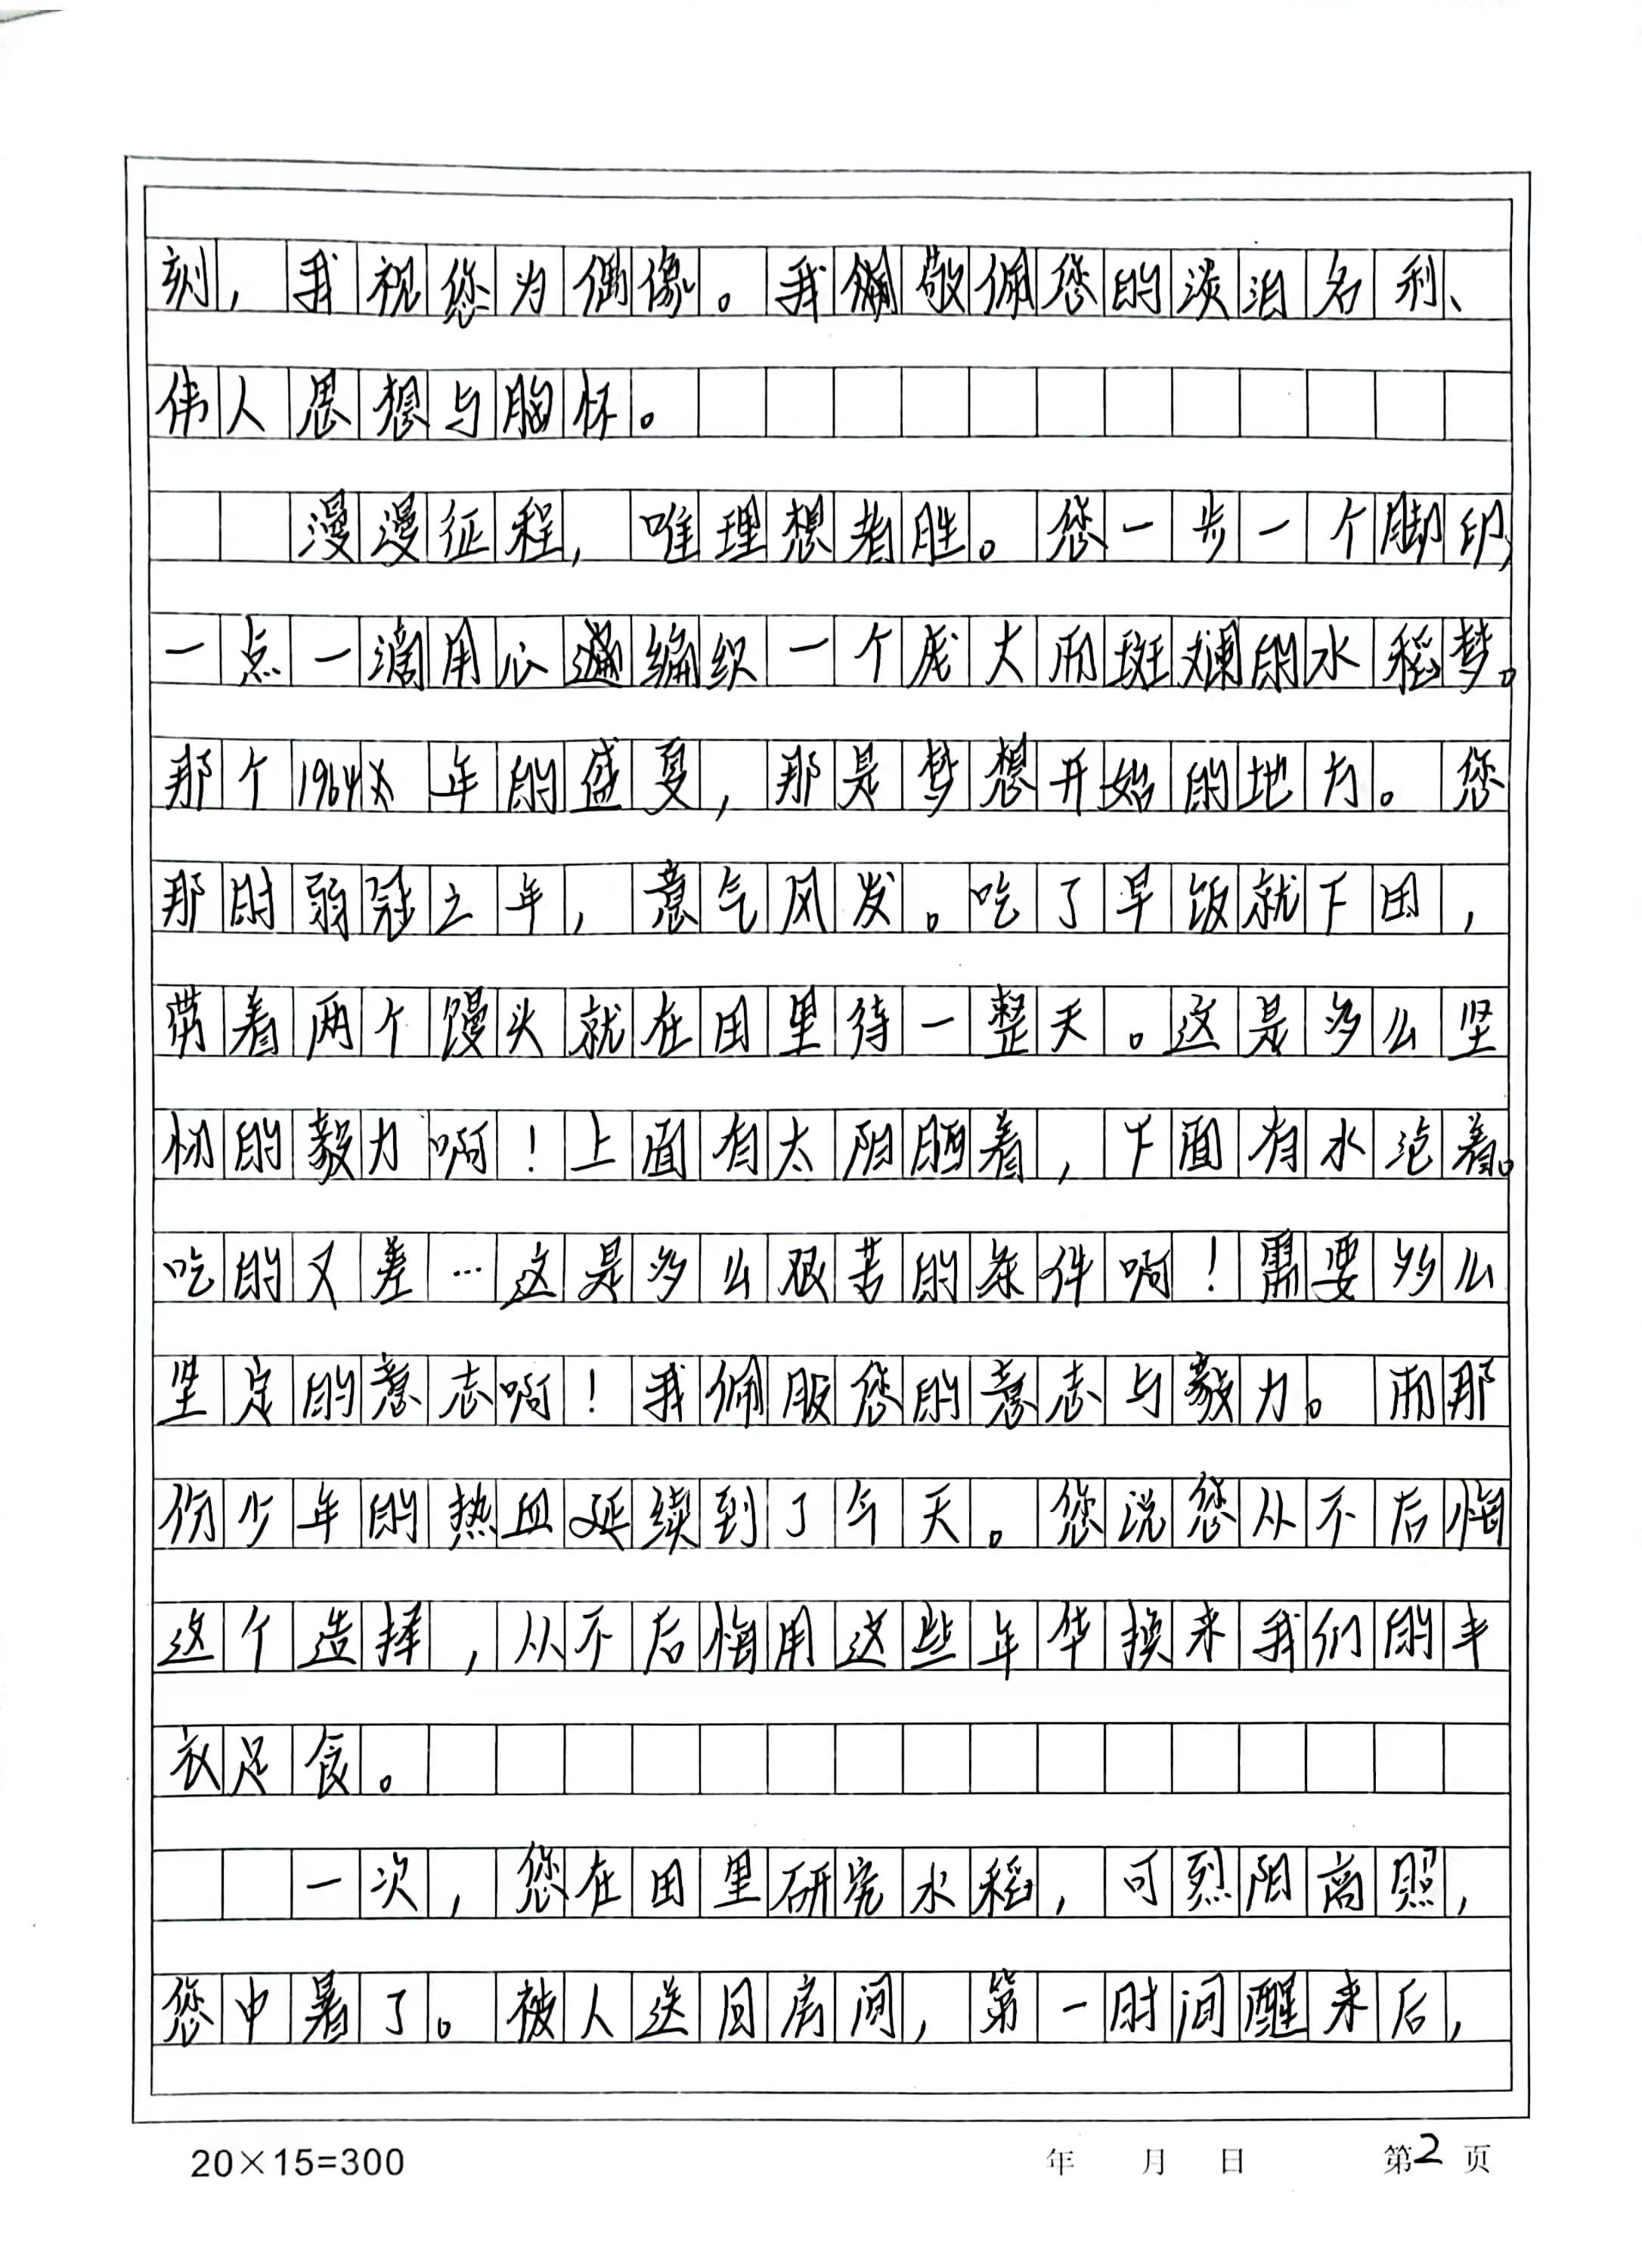 刻，我视您为偶像。我敬佩您的淡泊名利、
伟人思想与胸怀。
漫漫征程，唯理想者胜。您一步一个脚印，
一点一滴用心编织一个庞大而斑斓的水稻梦。
那个1964年的盛夏，那是梦想开始的地方。您
那时弱冠之年，意气风发。吃了早饭就下田，
带着两个馒头就在田里待一整天。这是多么坚
韧的毅力啊！上面有太阳晒着，下面有水泡着。
吃的又差…这是多么艰苦的条件啊！需要多么
坚定的意志啊！我佩服您的意志与毅力。而那
份少年的热血延续到了今天。您说您从不后悔
这个选择，从不后悔用这些年华换来我们的丰
衣足食。
一次，您在田里研究水稻，可烈阳高照，
您中暑了。被人送回房间，第一时间醒来后，
20×15=300 年 月 日 第2页